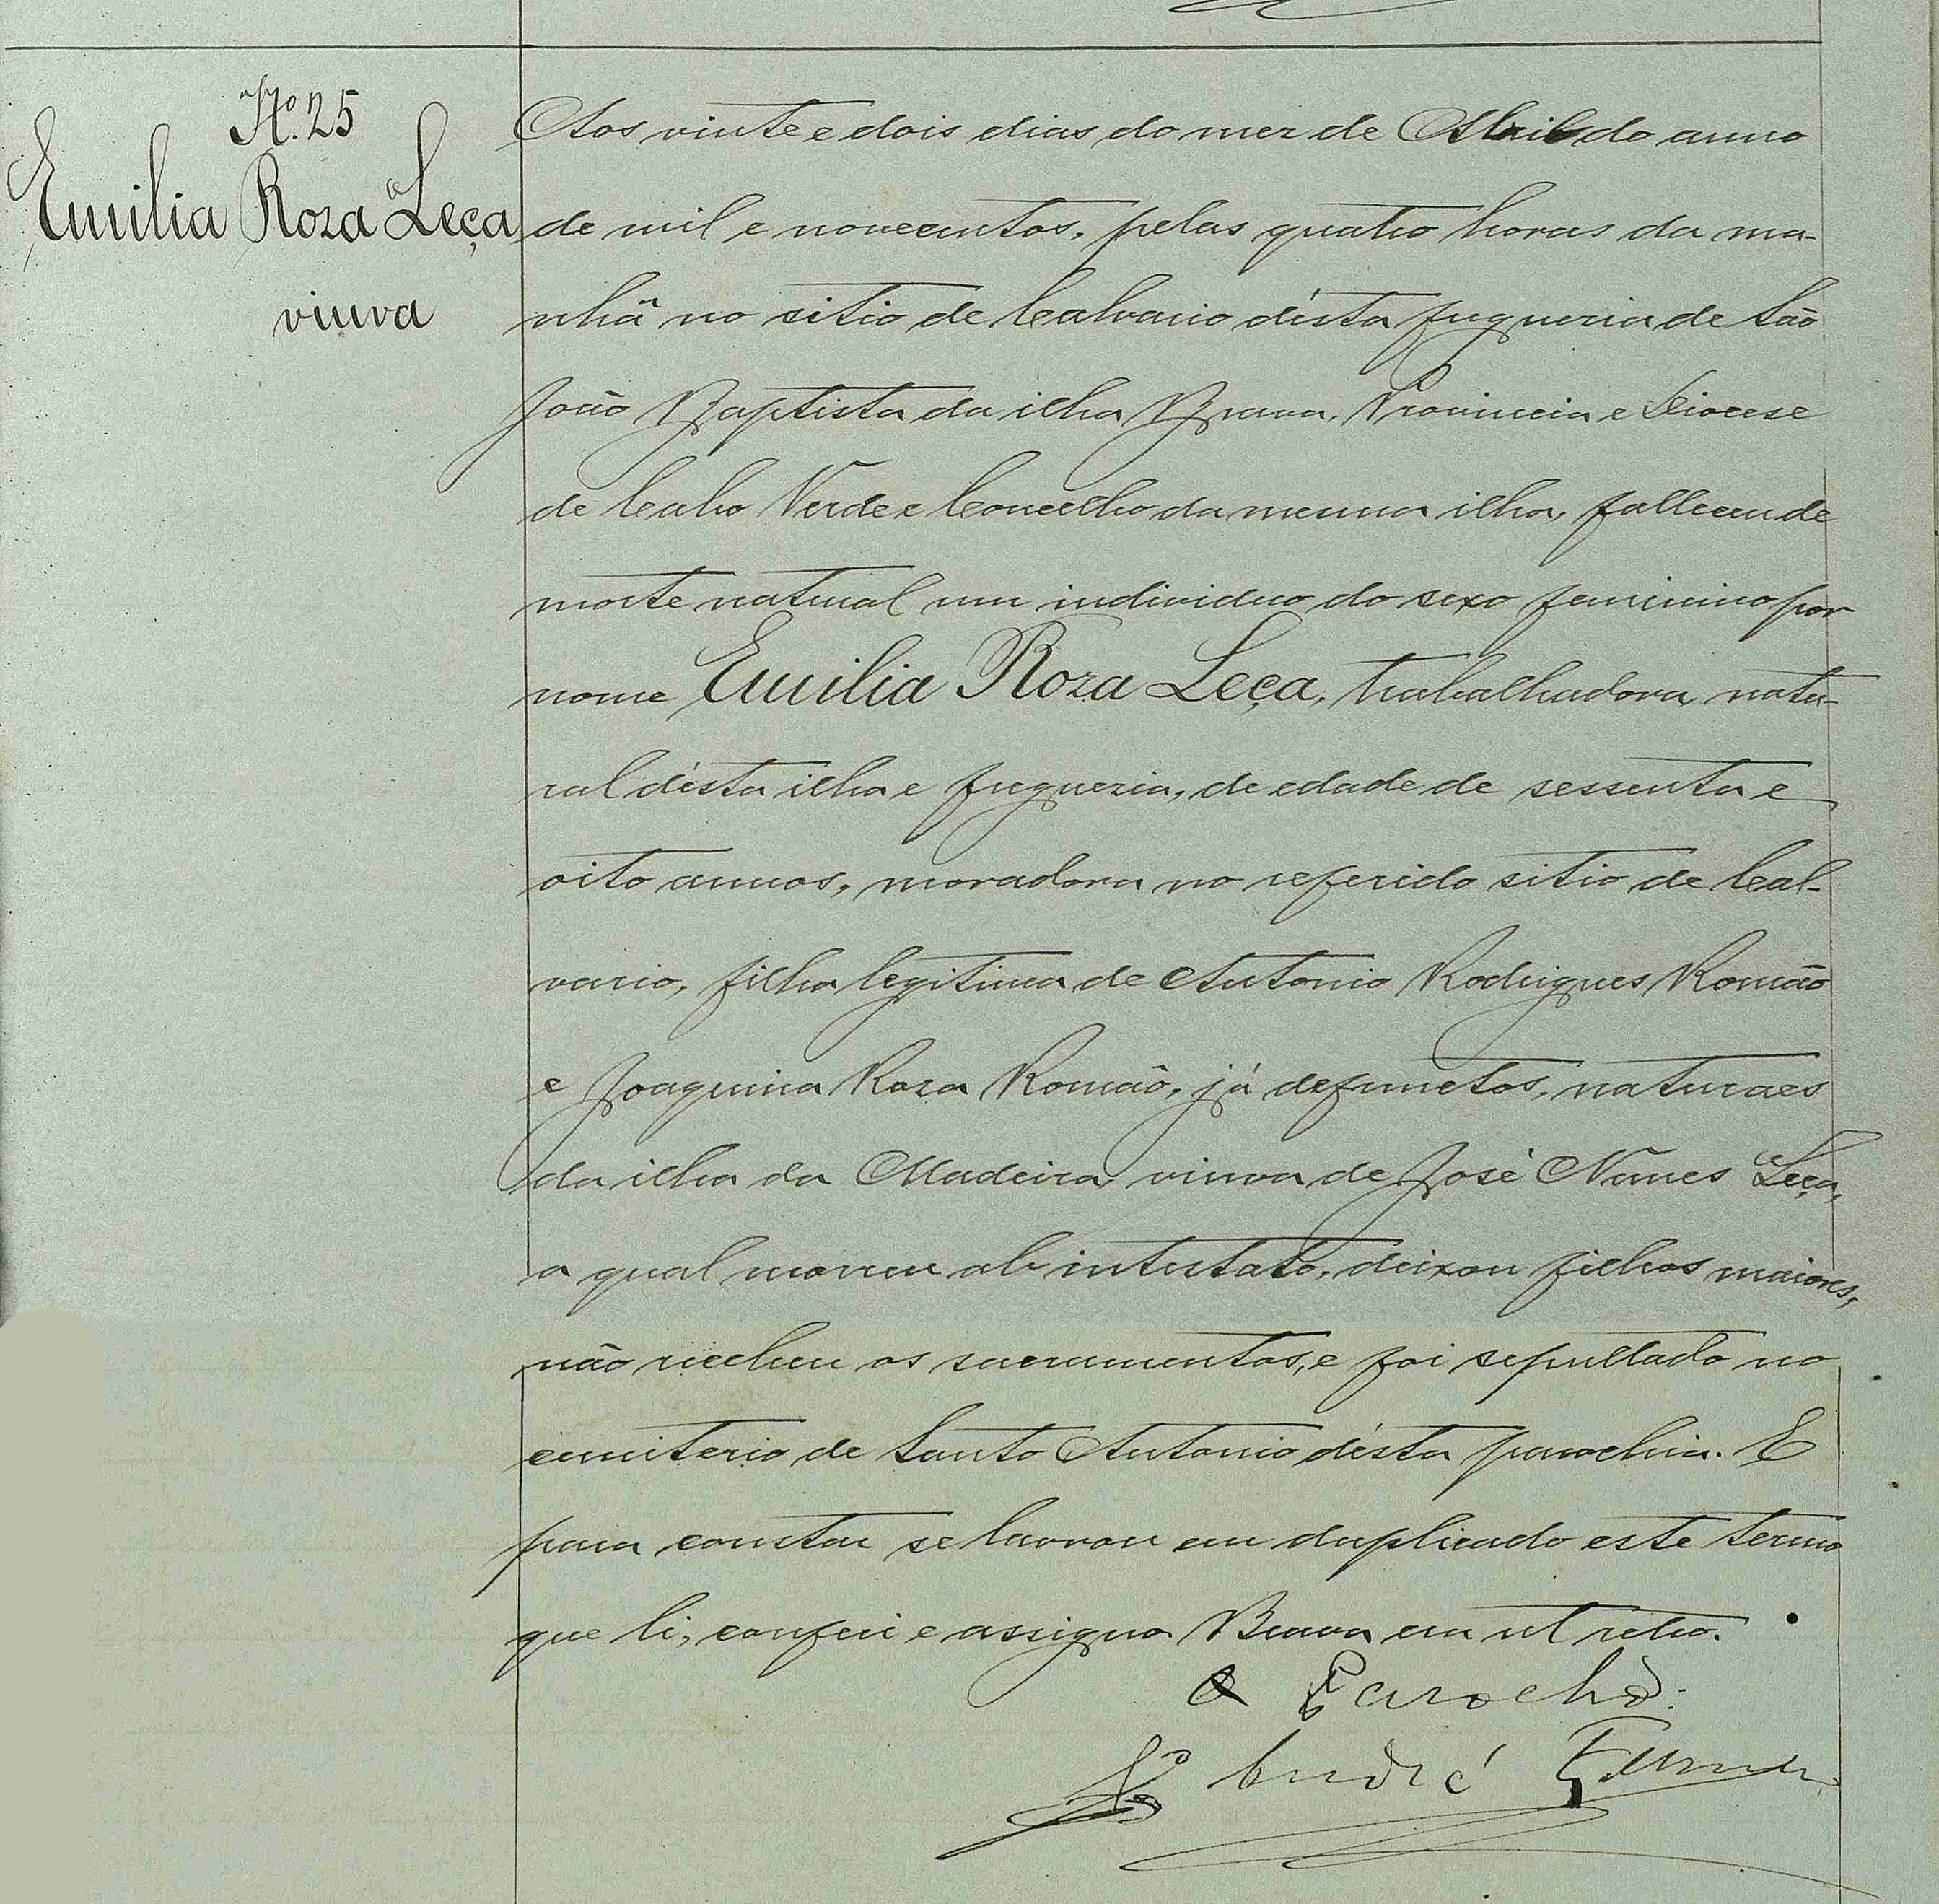 Nº. 25
Emilia Roza Leça
viuva
Aos vinte e dois dias do mez de Abril do anno
de mil e novecentos, pelas quatro horas da ma-
nhã no sitio de Calvario désta freguezia de São
João Baptista da ilha Brava, Provincia e Diocese
de Cabo Verde e Concelho da mesma ilha, falleceu de
morte natural um individuo do sexo feminino por
nome Emilia Roza Leça, trabalhadora, natu-
ral désta ilha e freguezia, de edade de sessenta e
oito annos, moradora no referido sitio de Cal-
vario, filha legitima de Antonio Rodrigues Romão
e Joaquina Roza Romão, já defunctos, naturaes
da ilha da Madeira, viuva de José Nunes Leça,
a qual morreu ab intestato, deixou filhos maiores,
não recebeu os sacramentos, e foi sepultado no
cemiterio de Santo Antonio désta parochia. E
para constar se lavrou em duplicado este termo
que li, conferi e assigno. Brava em ut retro.
O Parocho:
André